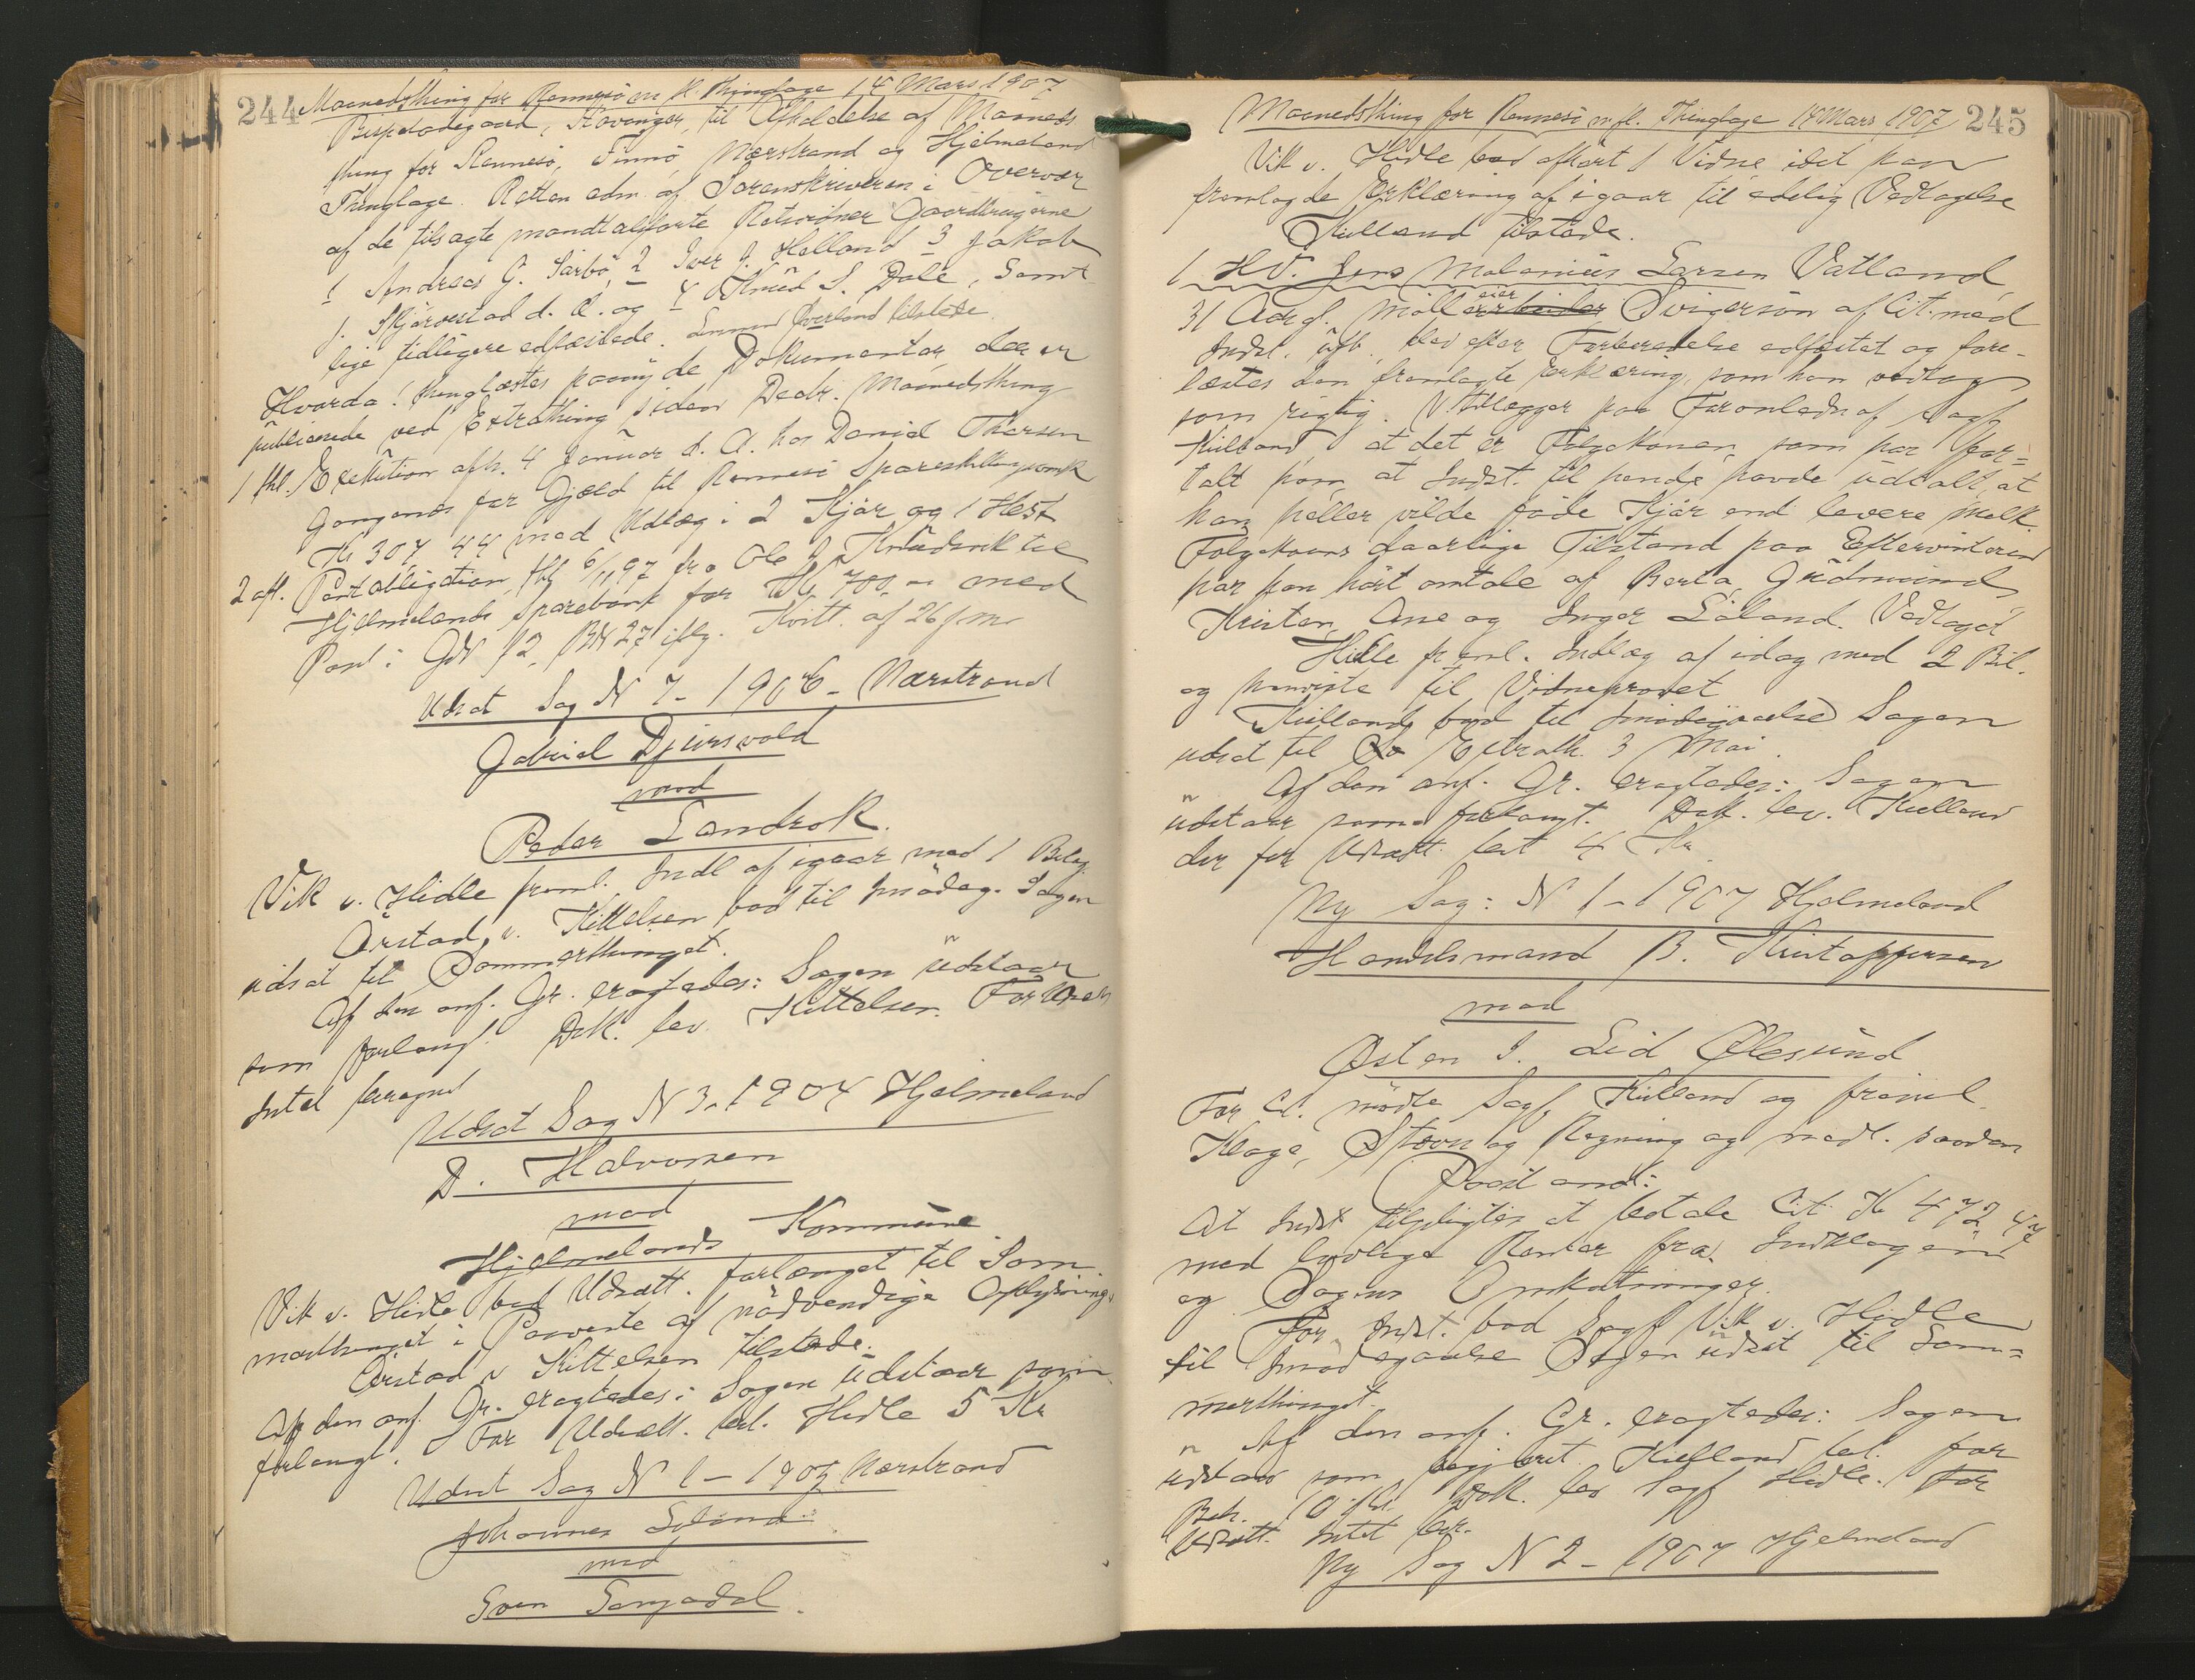 244 Maanedsthing for Rennesø m fl. Thinglage 14 Mars 1907
Bispeladegaard, Stavanger, til Afholdelse af Maaneds
thing for Rennesø, Finnø, Nærstrand og Hjelmeland
Thinglage. Retten adm. af Sorenskriveren i Overvær
af de tilsagte mandtalførte Retsvidner Gaardbrugerne
1 Andreas G. Sørbø, 2 Iver J. Helland 3 Jakob
J. Skjørvestad d. Æ. og 4 Knud S. Dale, Samt
lige tidligere edfæstede. Overland tilstede
Hvorda! thinglæstes paany de Dokumenter, der er
publicerede ved Extrathing siden Decbr. Maanedsthing
1 thl. Exekution afh. 4 Januar d. A. hos Daniel Thorsen
Gangenes for Gjæld til Rennesø Spareskillingsbank
Kr 307,44 med Udlæg i 2 Kjør og 1 Hest
2 afl. Pantobligation thl 6/11 97 fra Ole J. Knudsvik til
Hjelmelands Sparebank for Kr 700,- med
Pant i GN 12, BN 27 iflg. Kvitt. af 26 f. m.
Udsat Sag N 7 - 1906 - Nærstrand
Gabriel Djursvold
mod
Peder Landrok.
Vik v. Hidle freml. Indl af igaar med 1 Bilag
Ørstad, v. Kittelsen, bad til Imødeg. Sagen
udsat til Sommerthinget.
Af den anf. Gr. eragtedes: Sagen udstaar
som forlangt. Dok. lev. Kittelsen. For Udsæt
Intet beregnet
Udsat Sag N 3 - 1904 Hjelmeland
D. Halvorsen
mod
Hjelmelands Kommune
Vik v. Hidle bad Udsætt. forlænget til Som
merthinget i Paavente af nødvendige Oplysning.
Ørstad v Kittelsen tilstede.
Af den anf. Gr. eragtedes: Sagen udstaar som
forlangt. For Udsætt. bet. Hidle 5 Kr
Udsat Sag N 1 - 1907 Nærstrand
Johannes
mod
Sven
Maanedsthing for Rennesø m. fl. Thinglage 14 Mars 1907 245
Vik v. Hidle bad afhørt 1 Vidne, idet han
fremlagde Erklæring af igaar til edelig Vedtagelse
Kielland tilstede.
1 HV. Jens Malenius Larsen Vatland,
31 Aar g. Mølleeier Svigersøn af Cit. med
Indst. ublt. blev efter Forberedelse edfæstet og fore-
læstes den fremlagte Erklæring, som han vedtog
som rigtig. V. tillægger paa Foranledn af Sagf.
Kielland, at det er Folgekonen, som har for=
talt ham, at Indst. til hende havde udtalt, at
han heller vilde føde Kjør end levere Melk.
Folgekonens daarlige Tilstand paa Eftervinteren
har han hørt omtale af Berta, Gudmund,
Kristen, Ane og Inger Løland. Vedtaget
Hidle freml. Indlæg af idag med 2 Bil.
og henviste til Vidneprovet
Kielland bad til Imødegaaelse Sagen
udsat til Extrath. 3 Mai.
Af den anf. Gr. eragtedes: Sagen
udstaar som forlangt. Dok. lev. Kielland
der for Udsætt. bet 4 Kr
Ny Sag: N 1 - 1907 Hjelmeland
Handelsmand B. Kristoffersen
mod
Østen J. Lid Ølesund
For Cit. mødte Sagf. Kielland og freml.
Klage, Stævn og Regning og nedl. saadan
Paastand:
At Indst tilpligtes at betale Cit. Kr 472,47
med lovlige Renter fra Indklagen
og Sagens Omkostninger.
For Indst. bad Sagf Vik v. Hidle
til Imødegaaelse Sagen udsat til Som=
merthinget.
Af den anf. Gr. eragtedes: Sagen
udstaar som begjæret. Kielland bet. for
Beh. Dok. lev Sagf Hidle. For
Udsætt. Intet ber.
Ny Sag N 2 - 1907 Hjelmeland